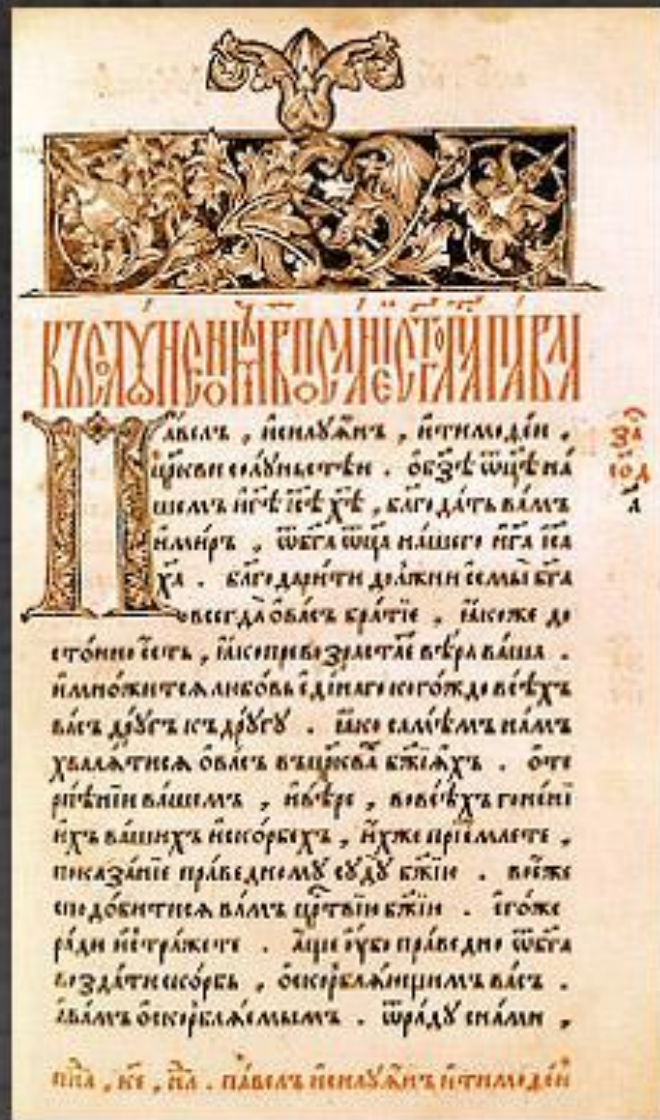 КЪ СОЛУНЕНОМЪ В ПОСЛАНІЕ СТГО АПЛА ПАВЛА
Па́велъ , и҆силꙋа́нъ , и҆тимоѳе́й ,
цр҃кви солꙋ́ньстѣй . ѡ҆бз҃ѣ ѿц҃ѣ на́
шемъ и҆гд҃ѣ і҆с҃ѣ хр҃тѣ̀ , бл҃года́ть ва́мъ
и҆ми́ръ , ѿбг҃а ѿц҃а на́шего и҆гд҃а і҆с҃а
хр҃та̀ . бл҃годари́ти до́лжни е҆смы̀ бг҃а
всегда̀ ѡ҆ва́съ бра́тїе , ꙗ҆́коже до
сто́йно є҆́сть , ꙗ҆́ко превозраста́е вѣ́ра ва́ша .
и҆мно́житсѧ любо́вь є҆ди́наго кого́ждо всѣ́хъ
ва́съ дрꙋ́гъ къ дрꙋ́гꙋ . ꙗ҆́ко самѣ́мъ на́мъ
хвали́тисѧ ѡ҆ва́съ въцр҃ква бж҃їѧхъ . ѡ҆те
рпѣ́нїи ва́шемъ , и҆вѣ́ре , вовсѣ́хъ гоне́нї
и҆хъ ва́шихъ и҆ско́рбехъ , и҆́хже прїе́млете ,
показа́нїе пра́ведномꙋ сꙋдꙋ̀ бж҃їю . воє҆́же
сподо́битисѧ ва́мъ црт҃вїю бж҃їю . є҆го́же
ра́ди и҆стра́жете . а҆́ще ꙋ҆́бо пра́ведно ѿбг҃а
возда́ти ско́рбь , ѡ҆скорблѧ́ющимъ ва́съ .
ава́мъ ѡ҆скорблѧ́емымъ . ѿра́дꙋ сна́ми ,
за
сод
а
па́велъ и҆силꙋа́нъ и҆тимоѳе́й